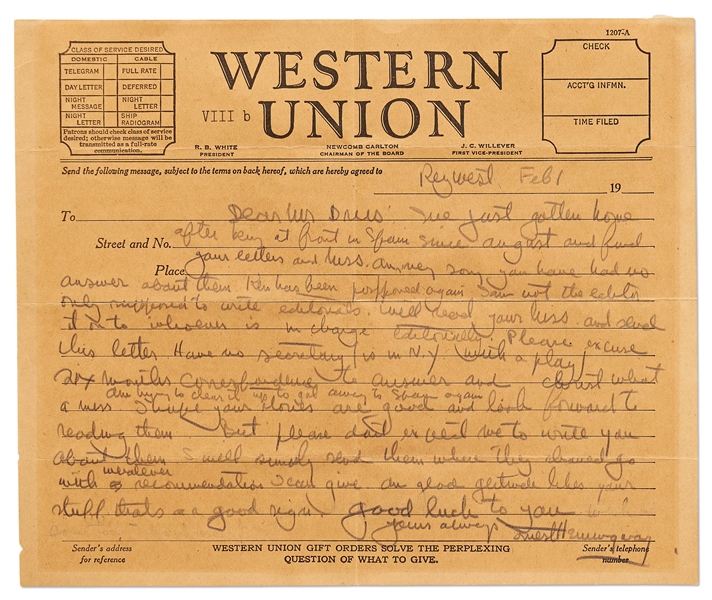 1207-A
CLASS OF SERVICE DESIRED
DOMESTIC CABLE
TELEGRAM FULL RATE
DAY LETTER DEFERRED
NIGHT MESSAGE NIGHT LETTER
NIGHT LETTER SHIP RADIOGRAM
Patrons should check class of service
desired; otherwise message will be
transmitted as a full-rate
communication.
WESTERN
UNION
VIII b
CHECK
ACCT'G INFMN.
TIME FILED
R. B. WHITE NEWCOMB CARLTON J. C. WILLEVER
PRESIDENT CHAIRMAN OF THE BOARD FIRST VICE-PRESIDENT
Send the following message, subject to the terms on back hereof, which are hereby agreed to
Key West Feb 1 19
To Dear Mr I've just gotten home
Street and No. after being at front in Spain since august and find
Place your letters and mss. sorry you have had no
answer about them. Ken has been postponed again I am not the editor
only supposed to write editorials. Will read your mss. and send
it on to whoever is in charge editorially. Please excuse
this letter. Have no secretary (is in N.Y. with a play)
six months correspondence to answer and christ what
am trying to clear it up to get away to Spain again
a mess I hope your stories are good and look forward to
reading them but please don't expect me to write you
about them I will simply send them where they should go
with whatever recommendation I can give am glad gertrude likes your
stuff thats a good sign. good luck to you
yours always Ernest Hemingway
Sender's address WESTERN UNION GIFT ORDERS SOLVE THE PERPLEXING Sender's telephone
for reference QUESTION OF WHAT TO GIVE. number